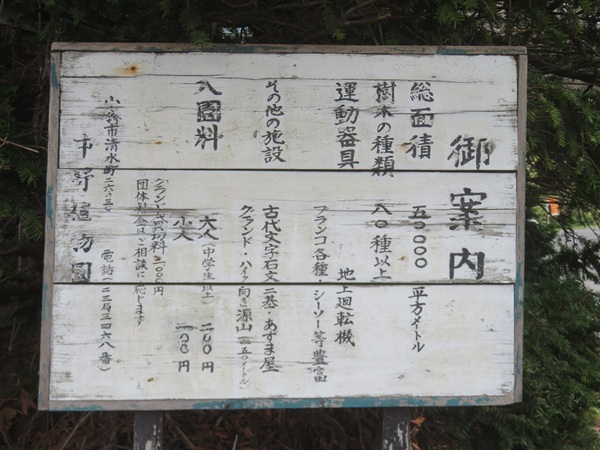 御案内
総面積 五〇〇〇〇平方メートル
樹木の種類 八〇種以上
運動器具 地上廻転機
ブランコ各種・シーソー等豊富
その他の施設 古代文字石文二基・あずま屋
グランド・ハイク向き源山
入園料 大人(中学生以上) 二〇〇円
小人 一〇〇円
団体割合はご相談に応じます
小樽市清水町二六ノ三〇
電話(二三局三四六八番)
中野植物園